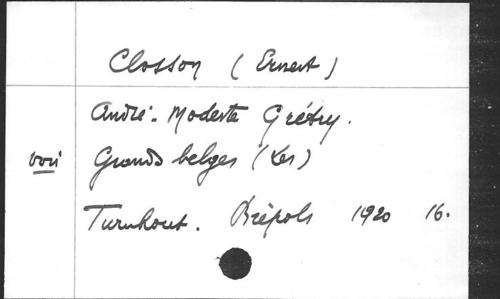 Closson (Ernest)
André-Modeste Grétry.
voir Grands belges (Les)
Turnhout. Brépols 1920 16.